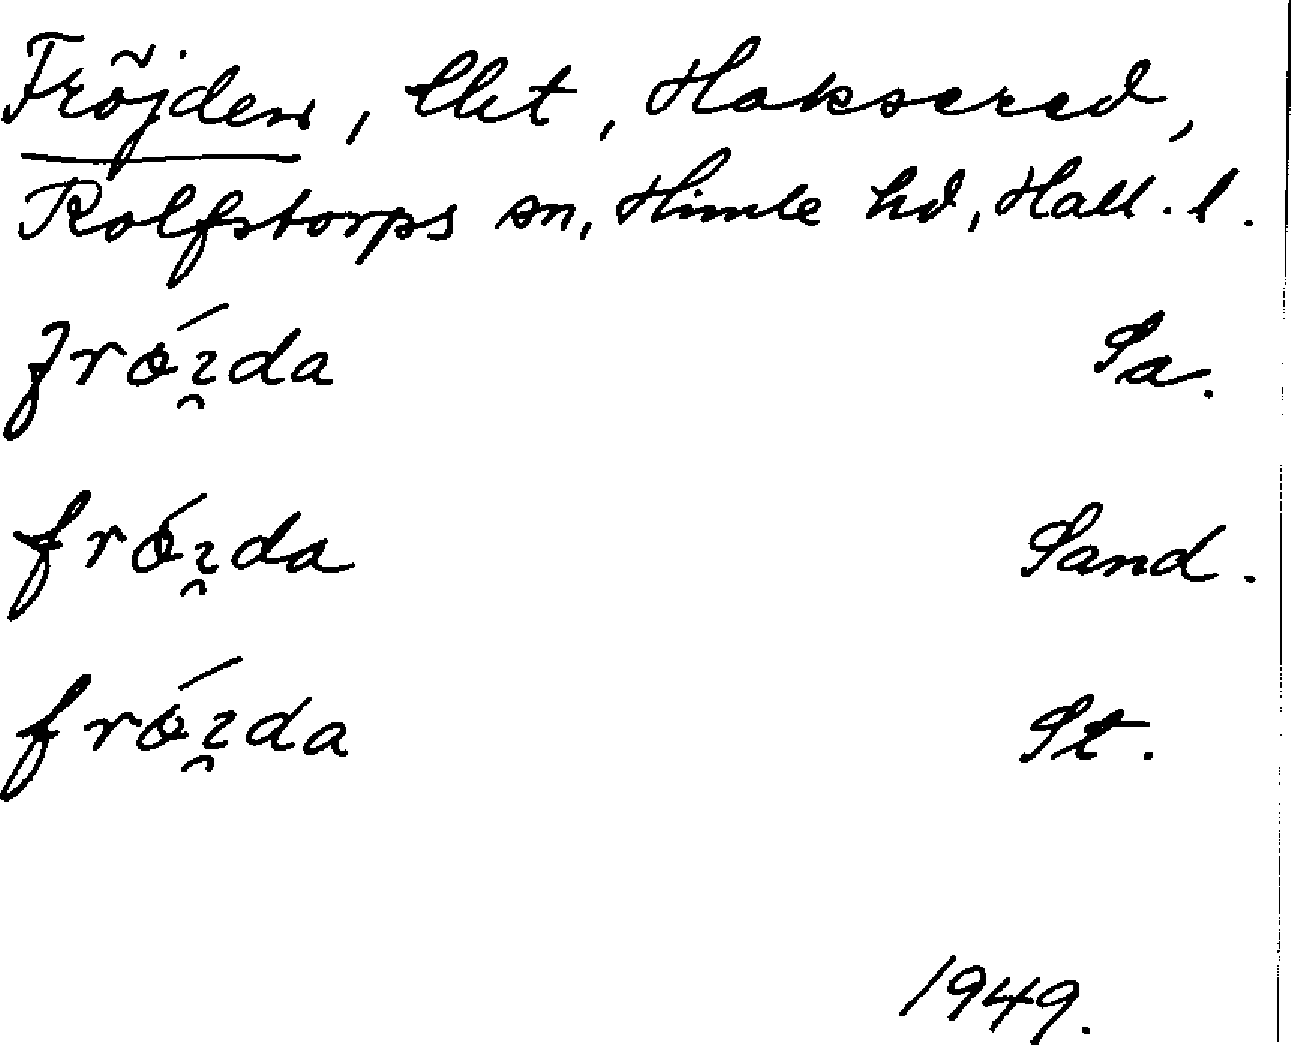 Fröjden, lht, Haksered,
Rolfstorps sn, Himle hd, Hall. l.
frö́ı̯da Sa.
frö́ı̯da Sand.
frö́ı̯da St.
1949.